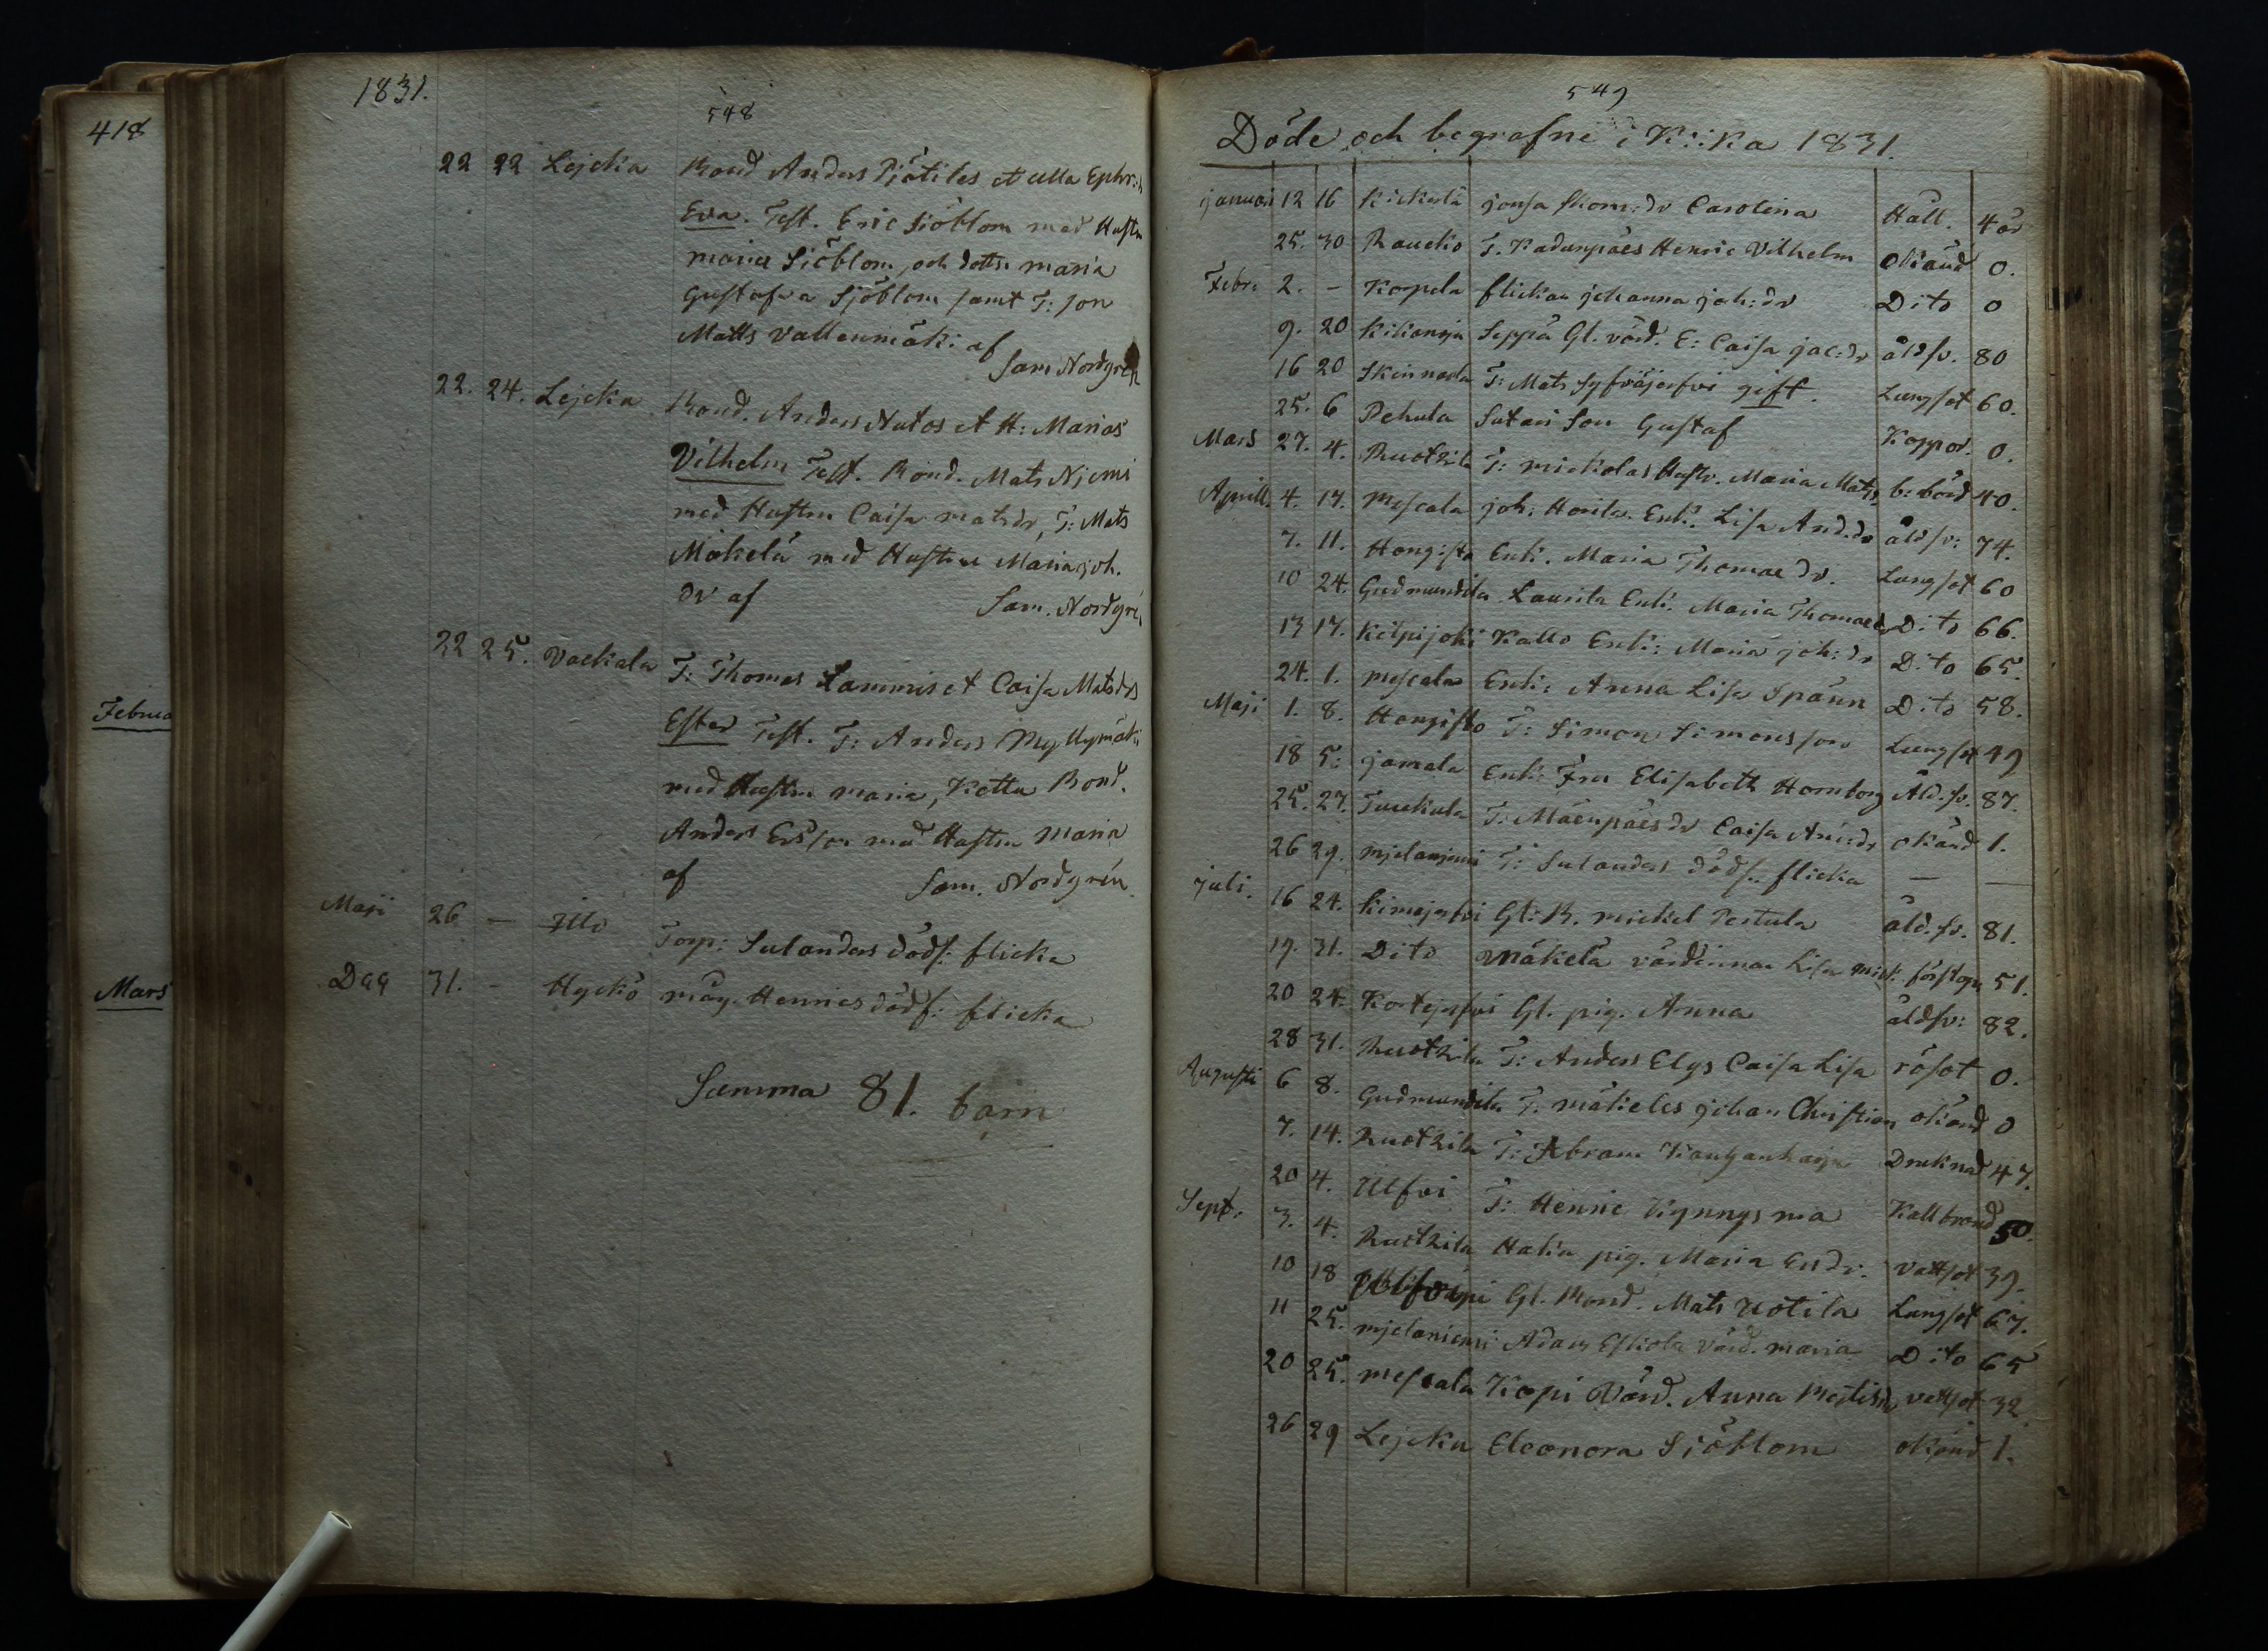 418
Februa
Mars
1831.
548
22 22 Lejcka Bond Anders Pjötiles et Ulla Ephr:
Eva. Test. Eric Siöblom med Hustn
maria Siöblom, och dottn maria
Gustafva Sjöblom samt T: son
Matts Vallenmäki af
Sam Nordgrén
22. 24. Lejcka Bond. Anders Autos et H: Marias
Vilhelm Test. Bond. Mats Njemi
med Hustrn Caisa matsdr, T: Mats
Mäkelä med Hustrn Maria joh.
dr af Sam. Nordgré
22 25. Vackala T: Thomas Lammis et Caisa Matsdrs
Ester Test. T: Anders Myllymäki
med Hustrn maria, Kettu Bond.
Anders Ersson med Hustrn Maria
af Sam. Nordgrén
Maji 26 — Torp: Sulanders dödf: flicka
31. - Hyckö mäg. Henrics dödf: flicka
Summa 81. barn
549
Döde och begrafne i K::Ka 1831.
januari 12 16 Kickerlä jonsa Skom:dr Carolina Håll. 4 år
25. 30 Raucko T. Kadunpäes Henric Vilhelm okänd 0.
Febr: 2. - Korpela flickan johanna joh:dr Dito 0
9. 20 Kikanoja Seppä Gl. värd. E: Caisa jac:dr åldsv. 80
16 20 Skinnarla T: Mats Syfväjerfvi gift. Lungsot 60.
25. 6 Pehula Sutari Son Gustaf Koppor. 0.
Mars 27. 4. Ruotzila T: mickolas Hustr. Maria Mats b: börd 40.
Aprill. 4. 17. Mescala joh: Enk: Lisa And.dr åldsv: 74.
7. 11. Hongisto Enk: Maria Thomae dr. Lungsot 60
10 24. Gudmundila Laurila Enk: Maria Thomaed Dito 66.
13 17. Kilpijoki Kallo Enk: Maria joh:dr Dito 65.
24. 1. Mescala Enk: Anna Lisa Spänn Dito 58.
Maji 1. 8. Hongisto T: Simon Simonsson Lungsot 49
18 5: jamala Enk: Fru Elisabeth Hornborg Åld.sv. 87.
25. 27. Tuckula T: Mäenpäes dr Caisa And:dr okänd 1.
26 29. mjelanjemi T: Sulanders dödf. flicka — —
juli. 16 24. Kimajerfvi Gl: B. mickel Pertula åld.sv. 81.
19. 31. Dito Mäkelä värdinnan Lisa mich: förstopn 51.
20 24. Kortejerfvi Gl. pig. Anna åldsv: 82.
28 31. Ruotzila T: Anders Elgs Caisa Lisa rösot 0.
Augusti 6 8. Gudmundila T. mäkeles johan Christian okänd 0
7. 14. Ruotzila T: Abram Drucknad 47.
20 4. Ulfvi T: Henric Kynnysma Kallbrand 50.
Sept. 3. 4. Ruotzila Halia pig. Maria Er:dr. vattsot 39.
10 18 Gl. Bond. Mats Uotila Lungsot 67.
11 25. mjelaniemi Adam Eskola värd. maria Dito 65
20 25. Mescala Kopi Värd. Anna vattsot 32
26 29 Lejcku Eleonora Sjöblom okänd 1.